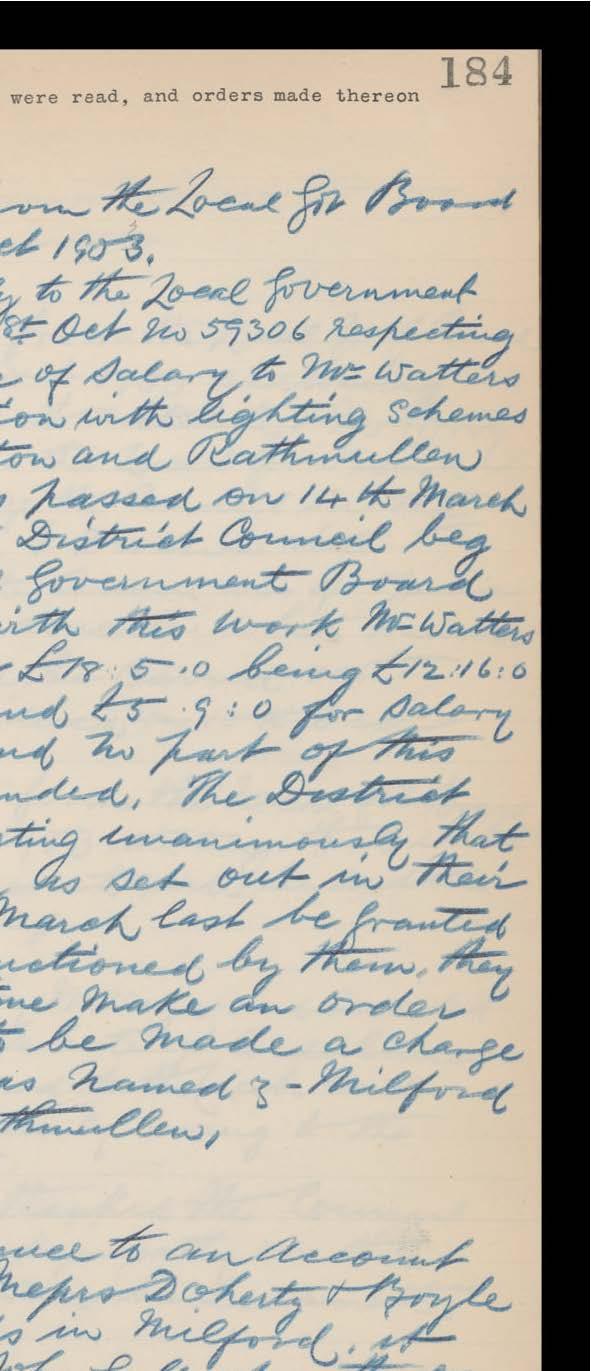 184
were read, and orders made thereon
the Local Gov Board
1903.
to the Local Government
8th Oct No 59306 respecting
of Salary to Mr Watters
with lighting Schemes
and Rathmullen
passed on 14th March
District Council beg
Government Board
this work Mr Watters
£18:5.0 being £12:16:0
£5.9:0 for Salary
no part of this
The District
unanimously that
as set out in their
March last be granted
by them, they
make an order
be made a charge
as named :- Milford
to an Account
Messrs Doherty & Boyle
in Milford, it